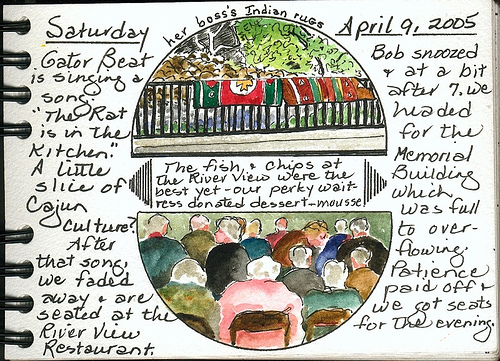 Saturday
Gator Beat
is singing a
song:
"The Rat
is in the
Kitchen."
A little
slice of
Cajun
Culture?
After
that song,
we faded
away & are
seated at the
River View
Restaurant.
her boss's Indian rugs
The fish & chips at
the River View were the
best yet - our perky wait-
ress donated dessert - mousse
April 9, 2005
Bob snoozed
& at a bit
after 7, we
headed
for the
Memorial
Building
which
was full
to over-
flowing.
Patience
paid off &
we got seats
for the evening.